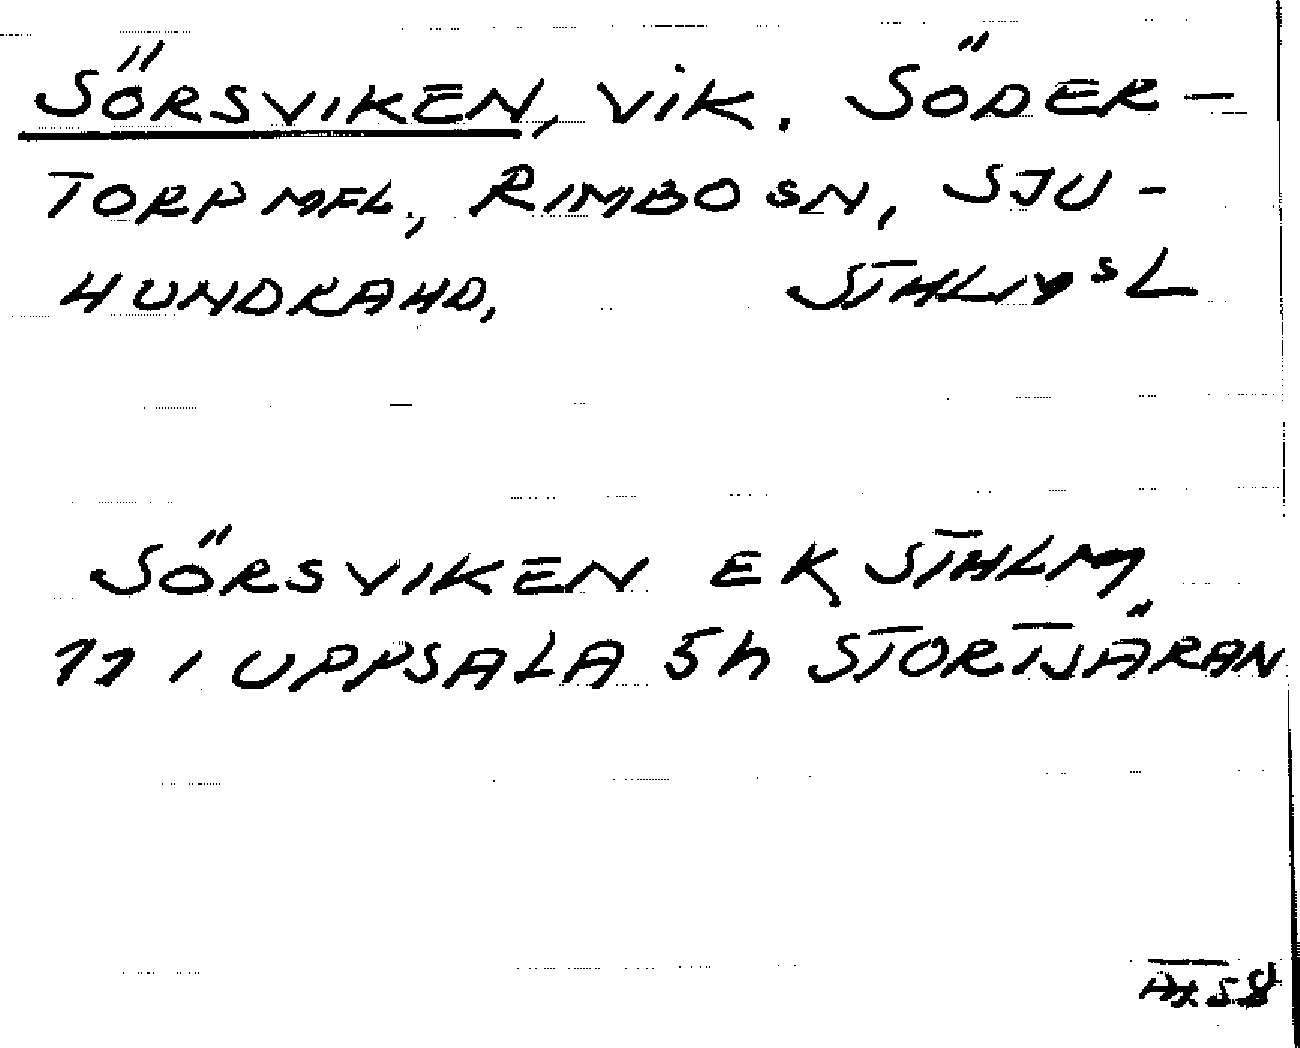 SÖRSVIKEN, VIK. SÖDER-
TORP MFL., RIMBO SN, SJU-
HUNDRA HD, STHLMS L
SÖRSVIKEN EK STHLM
11 I UPPSALA 5h STORTJÄRAN